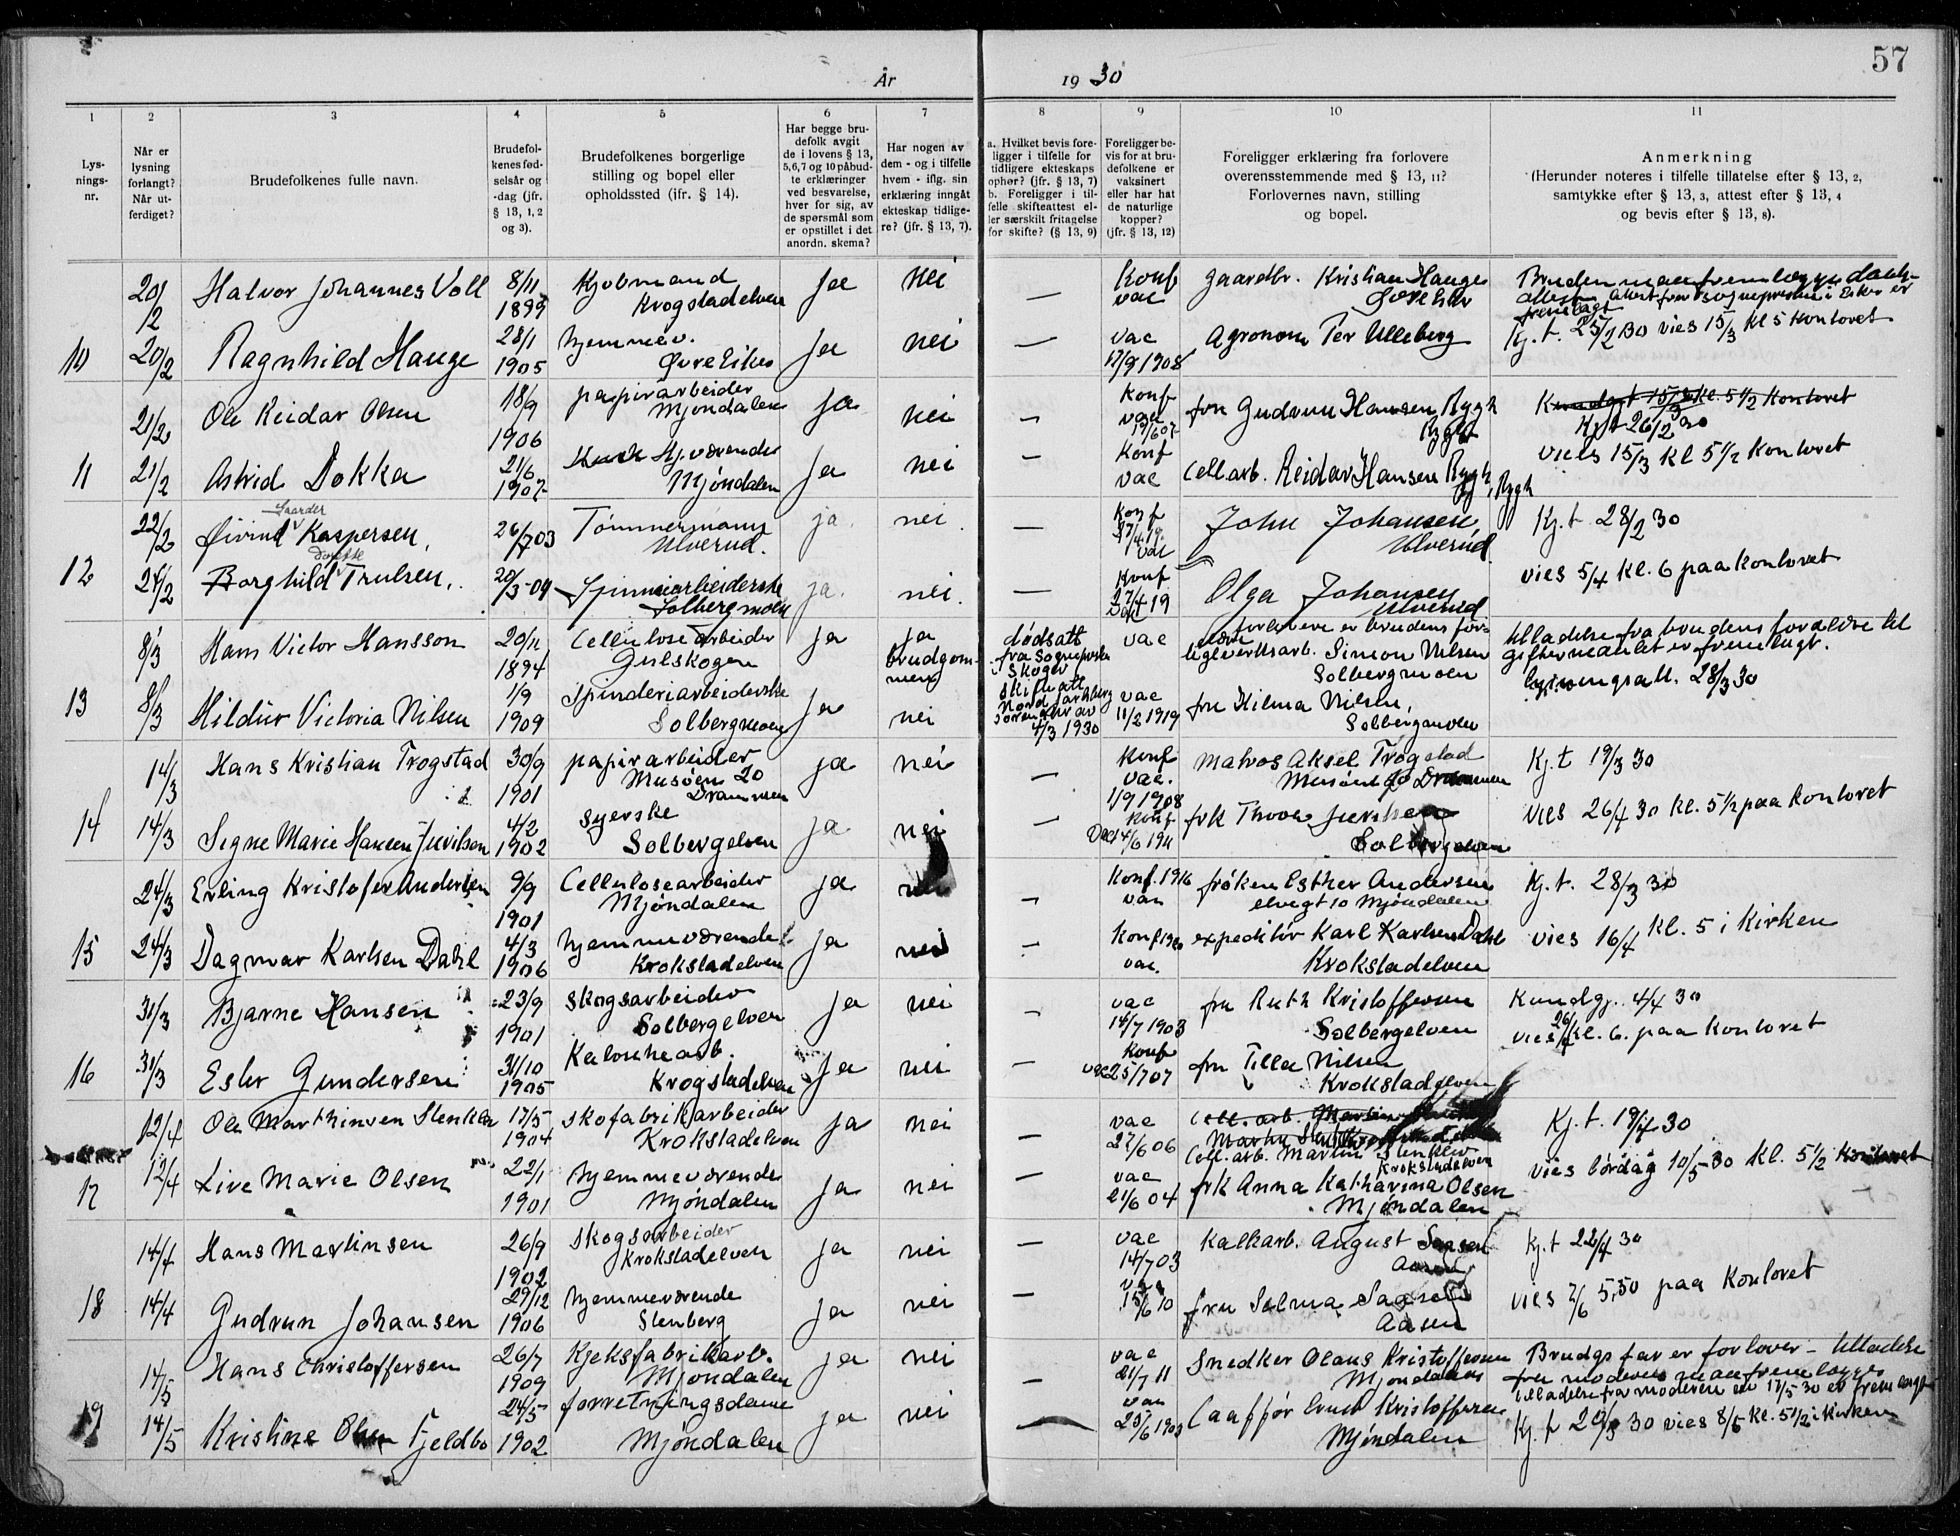 57
År 1930
1 2 3 4 5 6 7 8 9 10 11
Lys-
nings-
nr.
Når er
lysning
forlangt?
Når ut-
ferdiget?
Brudefolkenes fulle navn.
Brudefol-
kenes fød-
selsår og
-dag (jfr.
§ 13, 1, 2
og 3).
Brudefolkenes borgerlige
stilling og bopel eller
opholdssted (ifr. § 14).
Har begge bru-
defolk avgit
de i lovens § 13,
5,6,7 og 10 påbud-
te erklæringer
ved besvarelse,
hver for sig, av
de spørsmål som
er opstillet i det
anordn. skema?
Har nogen av
dem - og i tilfelle
hvem - iflg. sin
erklæring inngåt
ekteskap tidlige-
re? (jfr. § 13, 7).
a. Hvilket bevis fore-
ligger i tilfelle for
tidligere ekteskaps
ophør? (jfr. § 13, 7)
b. Foreligger i til-
felle skifteattest el-
ler særskilt fritagelse
for skifte? (§ 13, 9)
Foreligger be-
vis for at bru-
defolkene er
vaksinert
eller har hat
de naturlige
kopper?
(jfr. § 13, 12)
Foreligger erklæring fra forlovere
overensstemmende med § 13, 11?
Forlovernes navn, stilling
og bopel.
Anmerkning
(Herunder noteres i tilfelle tillatelse efter § 13, 2,
samtykke efter § 13, 3, attest efter § 13, 4
og bevis efter § 13, 8).
20/2 Halvor Johannes Voll 8/11 1899 Kjøbmand Krogstadelven ja nei — Konf vac gaardbr. Kristian Hauge Øvre Eiker Bruden maa fremlægge
10 20/2 Ragnhild Hauge 28/1 1905 hjemmev. Øvre Eiker ja nei — vac 17/9 1908 Agronom Per Ulleberg Kj. t. 25/2 30 vies 15/3 kl 5 kontoret
21/2 Ole Reidar Olsen 18/9 1906 papirarbeider Mjøndalen ja nei — Konf vac 19/6 07 fru Gudrun Hansen Rygh Rygh Kundgjt 15/3 kl. 5 1/2 kontoret
Kj.t 26/2 30
11 21/2 Astrid Dokka 21/6 1907 Hj.værende Mjøndalen ja nei — Konf vac Cell.arb. Reidar Hansen Rygh, Rygh vies 15/3 kl 5 1/2 kontoret
22/2 Øivind Kaspersen, 26/7 03 Tømmermann Ulverud. ja. nei. — Konf vac John Johansen Ulverud Kj. t 28/2 30
12 24/2 Borghild Dorthe Trulsen, 20/3-09 Spinneriarbeiderske Solbergmoen ja. nei. — Konf 27/4 19 Olga Johansen Ulverud vies 5/4 kl. 6 paa kontoret
8/3 Hans Victor Hansson 20/11 1894 Cellulosearbeider Gulskogen ja ja brudgommen dødsatt fra Sogneprsten i Skoger vac forlovere er brudens for-
ældre teglverksarb. Simon Nilsen Solbergmoen tilladelse fra brudens forældre til
giftermaalet er fremlagt.
13 8/3 Hildur Victoria Nilsen 1/9 1909 Spinderiarbeiderske Solbergmoen ja nei skifteatt Nord Jarlsberg Sorenskr av 4/3 1930 vac 11/2 1919 fru Hilma Nilsen, Solbergmoen lysningsatt. 28/3 30
14/3 Hans Kristian Trogstad 30/9 1901 papirarbeider Musøen 20 Drammen ja nei — Konf vac. 1/9 1908 Matros Aksel Trogstad Musøen 20 Drammen Kj. t 19/3 30
14 14/3 Signe Marie Hansen Juvilsen 4/2 1902 syerske Solbergelven ja nei — Konf Vac 14/6 1911 frk Thora Solbergelven vies 26/4 30 kl. 5 1/2 paa kontoret
24/3 Erling Kristofer Andersen 9/9 1901 Cellulosearbeider Mjøndalen ja nei — Konf. 1916 vac frøken Esther Andersen elvegt 10 Mjøndalen Kj. t. 28/3 30
15 24/3 Dagmar Karlsen Dahl 4/3 1906 hjemmeværende Krokstadelven ja nei — Konf 1920 vac. expeditør Karl Karlsen Dahl Krokstadelven vies 16/4 kl. 5 i Kirken
31/3 Bjarne Hansen 23/9 1901 Skogsarbeider Solbergelven ja nei — vac 14/7 1903 fru Ruth Kristoffersen Solbergelven Kundgj. 4/4 30
16 31/3 Ester Gundersen 31/10 1905 Kaloschearb. Krogstadelven ja nei — Konf vac 25/7 07 fru Tilla Nilsen Krokstadelven vies 26/4 kl. 6. paa kontoret
12/4 Ole Marthinsen Stenklev 17/5 1904 Skofabrikarbeider Krokstadelven ja nei — vac 27/6 06 Cell. arb. Martin Stenklev Krokstadelven Kj. t. 19/4 30
17 12/4 Live Marie Olsen 22/1 1901 hjemmeværende Mjøndalen ja nei — vac 21/6 04 frk Anna Katharina Olsen Mjøndalen vies lørdag 10/5 30 kl. 5 1/2 kontoret
14/4 Hans Martinsen 26/9 1902 Skogsarbeider Krokstadelven ja nei — vac 14/7 03 Kalkarb. August Aasen Kj. t 22/4 30
18 14/4 Gudrun Johansen 29/12 1906 hjemmeværende Stenberg ja nei — vac 15/6 10 fru Selma Aasen vies 7/6 5,50 paa kontoret
14/5 Hans Christoffersen 26/7 1909 Kjeksfabrikarb. Mjøndalen ja nei — vac 21/7 11 Snedker Olaus Kristoffersen Mjøndalen Brudgs far er forlover – tilladelse
fra moderen maa fremlægges
tilladelse fra moderen av 17/5 30 er fremlagt
19 14/5 Kristine Olsen Fjeldbo 24/5 1902 forretningsdame Mjøndalen ja nei — vac Kristoffersen Mjøndalen Kj. t 20/5 30 vies 8/5 kl. 5 1/2 i kirken